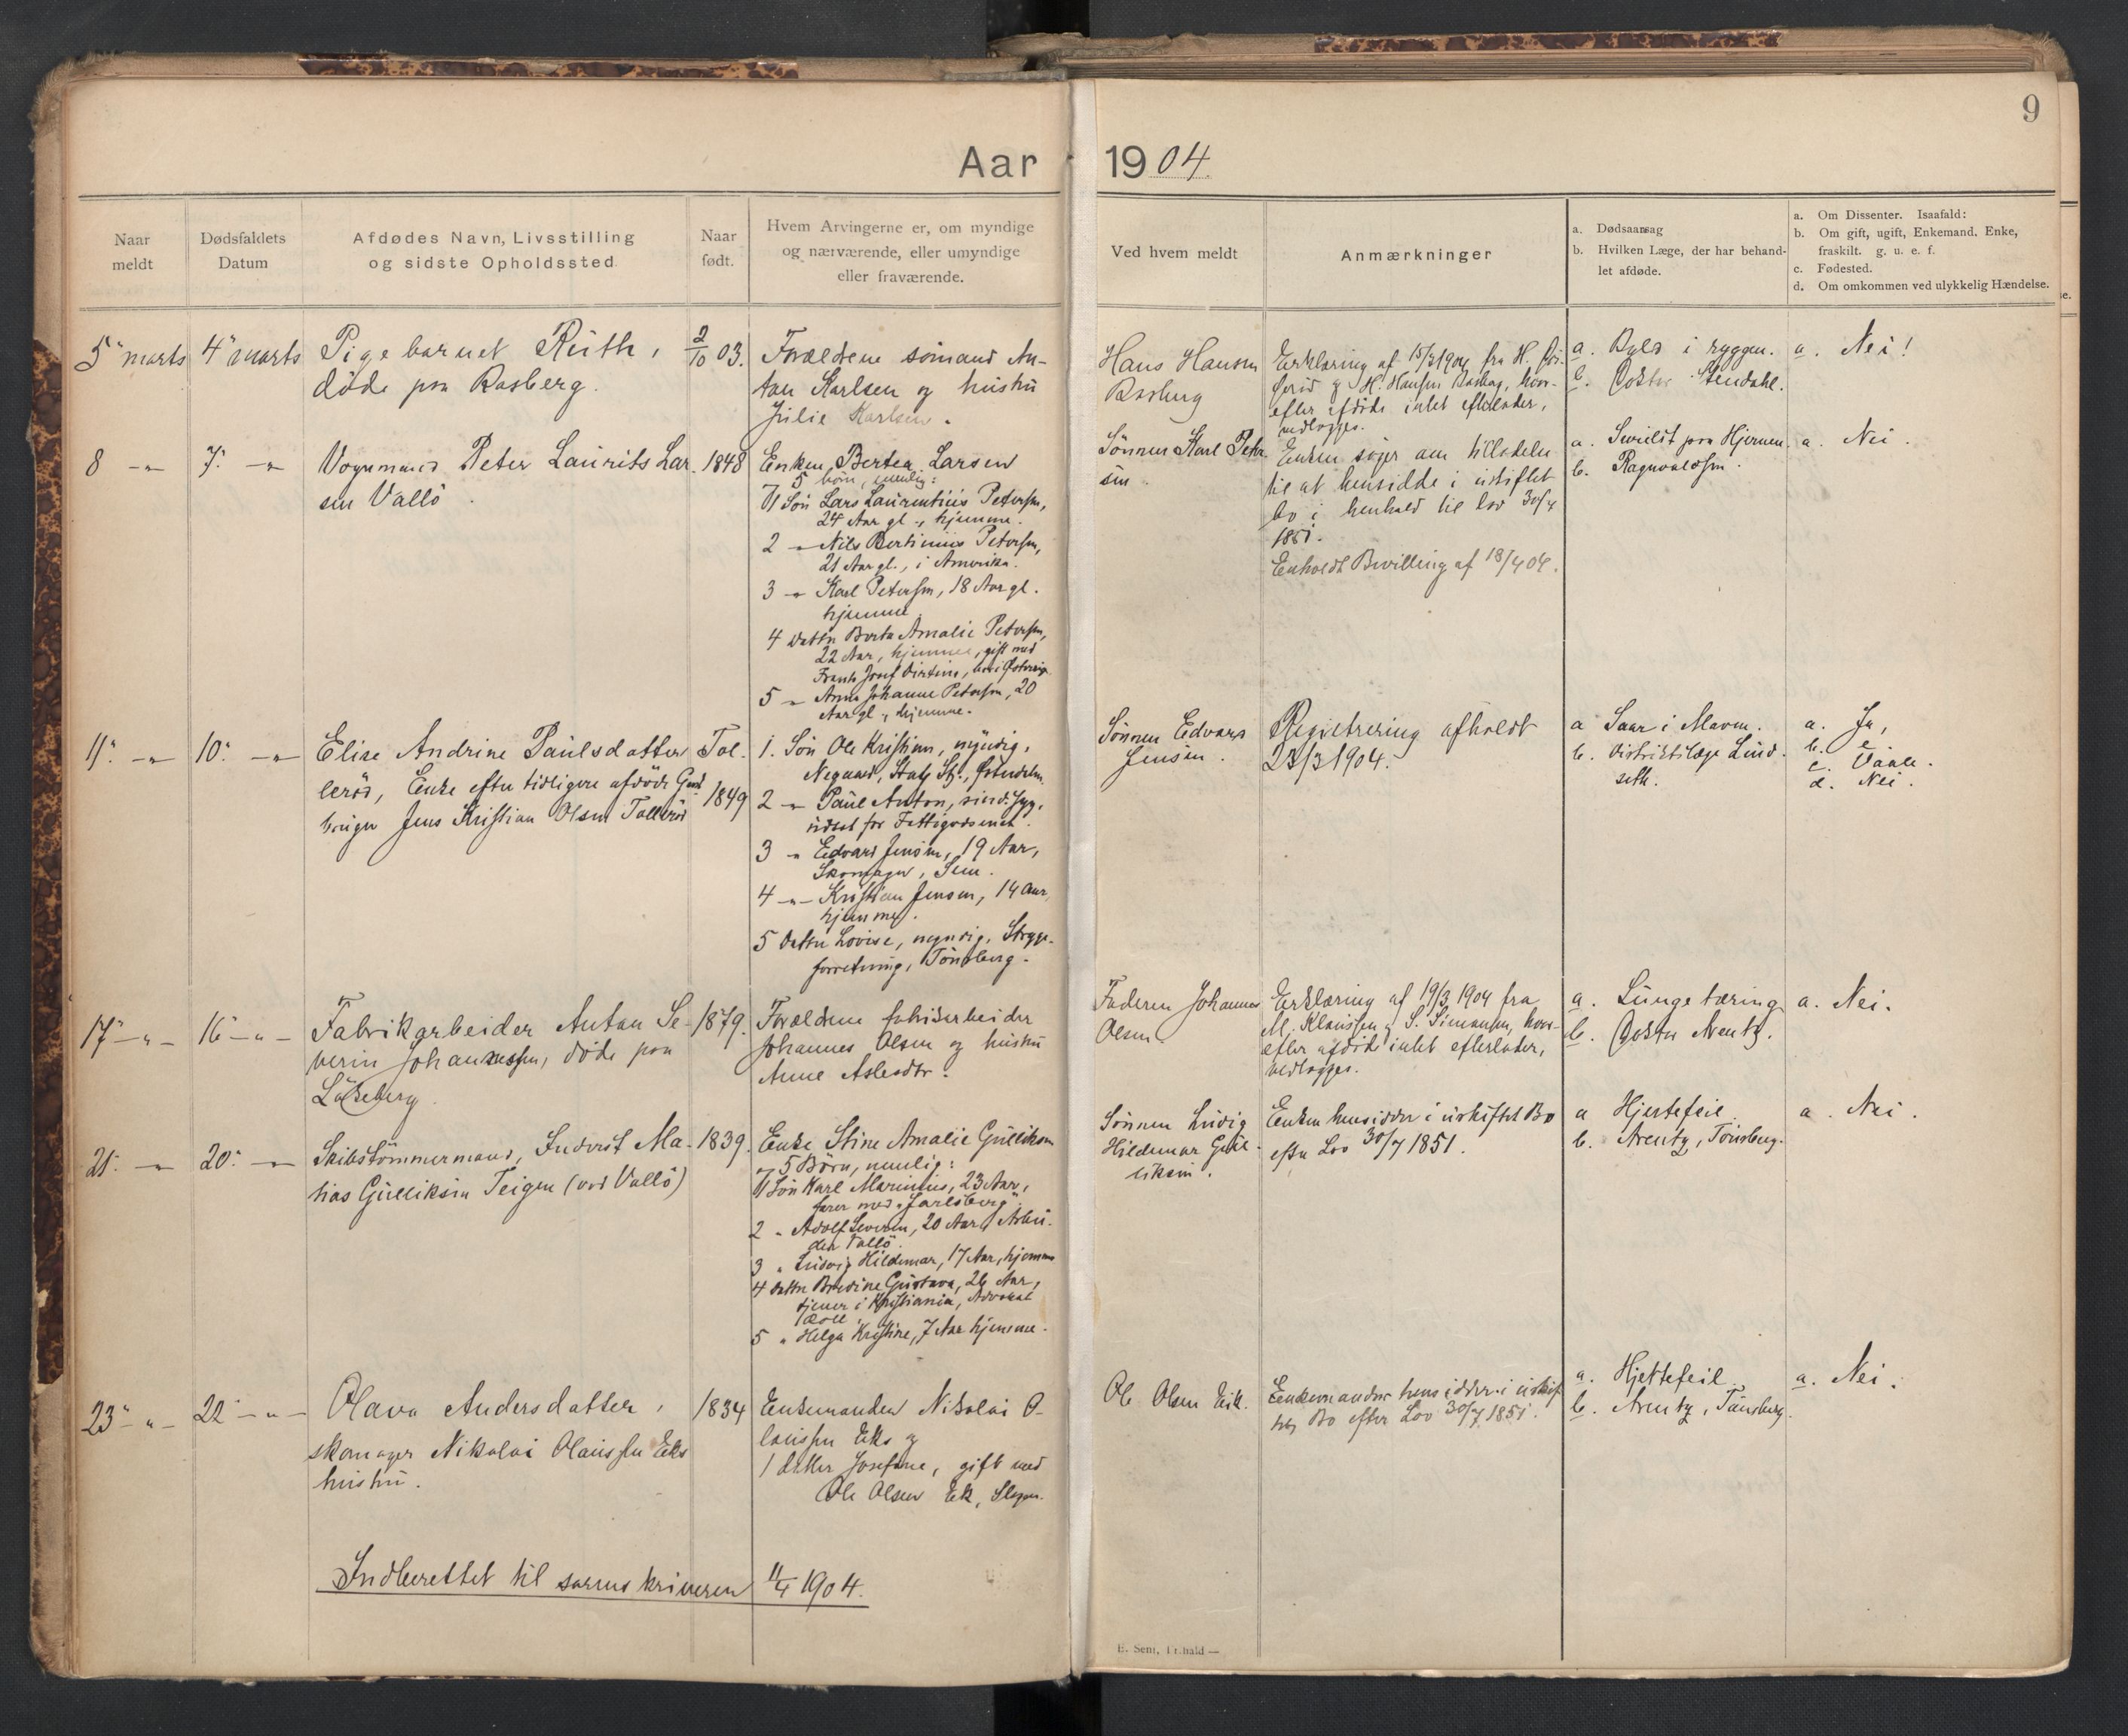 9
Aar 1904.
Naar
meldt
Dødsfaldets
Datum
Afdødes Navn, Livsstilling
og sidste Opholdssted
Naar
født.
Hvem Arvingerne er, om myndige
og nærværende, eller umyndige
eller fraværende.
Ved hvem meldt
Anmærkninger
a. Dødsaarsag
b. Hvilken Læge, der har behand-
let afdøde.
a. Om Dissenter. Isaafald:
b. Om gift, ugift, Enkemand. Enke,
fraskilt. g. u. e. f.
c. Fødested.
d. Om omkommen ved ulykkelig Hændelse.
5" marts
4" marts
Pigebarnet Ruth,
døde paa Rasberg.
2/10 03.
Forældrene sømand An-
ton Karlsen og hustru
Julie Karlsen.
Hans Hansen
Rasberg
Erklæring af 15/3 1904 fra H.
og H. Hansen Rasberg, hvor-
efter afdøde intet efterlader,
vedlægges.
a. Byld i ryggen.
b. Doktor Stendahl.
a. Nei!
8 -"-
7. -"-
Vognmand Peter Laurits Lar-
sen Vallö.
1848
Enken Bertea Larsen
5 börn, nemlig:
1) Sön Lars Laurentius Petersen,
24 Aar gl., hjemme.
2 -"- Nils Bertinius Petersen,
21 Aar gl., i Amerika.
3 -"- Karl Petersen, 18 Aar gl.
hjemme
4 Datter Berta Amalie Petersen,
22 Aar, hjemme, gift med
Frants Josef
5 -"- Anna Johanne Petersen, 20
Aar gl., hjemme.
Sönnen Karl Peter-
sen.
Enken söger om tilladelse
til at hensidde i uskiftet
bo i henhold til lov 30/7
1851.
Enholdt Bevilling af 18/4 04.
a. Svulst paa Hjernen.
b. Ragnvaldsen.
a. Nei.
11" -"-
10" -"-
Elise Andrine Paulsdatter Tol-
lerød, Enke efter tidligere afdöde Gaard-
bruger Jens Kristian Olsen Tollerød
1849
1. Sön Ole Kristian, myndig,
Negaard,
2 -"- Paul Anton, sindssyg,
udsat for Fattigvæsenet.
3 -"- Edvard Jensen, 19 Aar,
Skomager, Sem.
4 -"- Kristian Jensen, 14 Aar,
hjemme.
5 Datter Lovise, myndig, Stryge-
forretning, Tönsberg.
Sönnen Edvard
Jensen.
Registrering afholdt
23/3 1904.
a Saar i Maven.
b. Distriktslæge Lind-
seth.
a. Ja,
b. e
c. Vaale.
d. Nei.
17" -"-
16" -"-
Fabrikarbeider Anton Se-
verin Johannessen, döde paa
Lökeberg.
1879.
Forældrene fabrikarbeider
Johannes Olsen og hustru
Anne Aslesdtr.
Faderen Johannes
Olsen
Erklæring af 19/3 1904 fra
M. Klausen og S. Simonsen, hvor-
efter afdöde intet efterlader,
vedlægges.
a. Lungetæring
b. Doktor Arentz.
a. Nei.
21. -"-
20" -"-
Skibstömmermand, Indvist Ma-
thias Gulliksen Teigen (ved Vallö)
1839.
Enke Stine Amalie Gulliksen
5 Börn, nemlig:
1) Sön Karl Marinius, 23 Aar,
farer med "Jarlsberg".
2 " Adolf Severin, 20 Aar, Arbei-
der Vallö.
3 " Ludvig Hildemar, 17 Aar, hjemme
4 Datter Bredine Gustava, 26 Aar,
tjener i Kristiania, Advokat
5 " Helga Kristine, 7 Aar hjemme.
Sönnen Ludvig
Hildemar Gul-
liksen.
Enken hensidder i uskiftet Bo
efter Lov 30/7 1851.
a Hjertefeil.
b. Arentz, Tönsberg.
a. Nei.
23" -"-
22" -"-
Olava Andersdatter,
skomager Nikolai Olaussen Eks
hustru.
1834
Enkemanden Nikolai O-
laussen Eks og
1 datter Josefine, gift med
Ole Olsen Ek, Slagen.
Ole Olsen Eik.
Enkemanden hensidder i uskif-
tet Bo efter Lov 30/7 1851.
a. Hjertefeil.
b. Arentz, Tönsberg.
a. Nei.
Indberettet til sorenskriveren 11/4 1904.